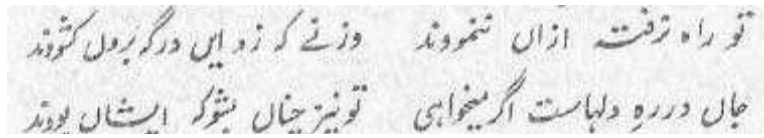 تو راه نرفته ازان ننمودند ورنے که زد این در که برون کشودند
جان در ره دلهاست اگر میخواهی تو نیز چنان بشو که ایشان بودند